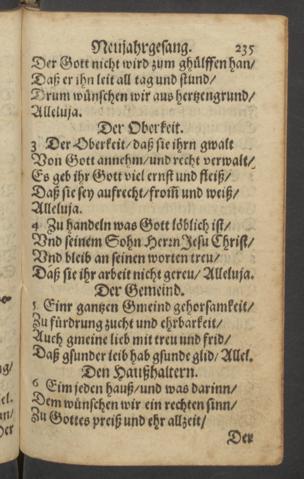 Neujahrgesang. 235
Der Gott nicht wird zum ghülffen han/
Daß er ihn leit all tag und stund/
Drum wünschen wir aus hertzengrund/
Alleluja.
Der Oberkeit.
3 Der Oberkeit/ daß sie ihrn gwalt
Von Gott annehm/ und recht verwalt/
Es geb ihr Gott viel ernst und fleiß/
Daß sie sey aufrecht/ from̃ und weiß/
Alleluja.
4 Zu handeln was Gott löblich ist/
Vnd seinem Sohn Herrn Jesu Christ/
Vnd bleib an seinen worten treu/
Daß sie ihr arbeit nicht gereu/ Alleluja.
Der Gemeind.
5 Einr gantzen Gmeind gehorsamkeit/
Zu fürdrung zucht und ehrbarkeit/
Auch gmeine lieb mit treu und frid/
Daß gsunder leib hab gsunde glid/ Allel.
Den Haußhaltern.
6 Eim jeden hauß/ und was darinn/
Dem wünschen wir ein rechten sinn/
Zu Gottes preiß und ehr allzeit/
Der